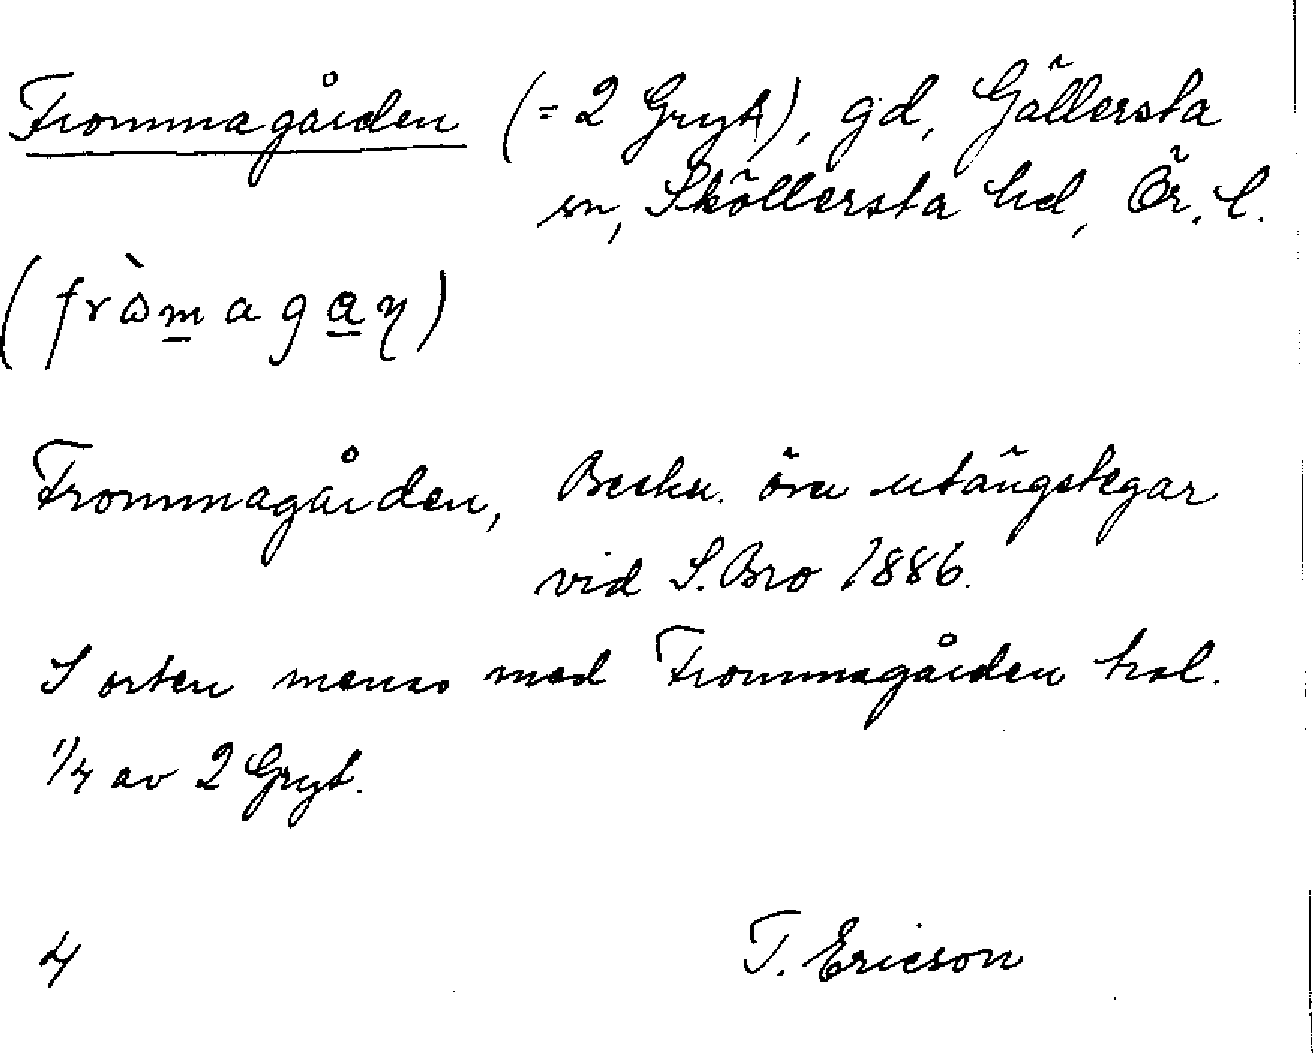 Frommagården (= 2 Gryt), gd, Gällersta
sn, Sköllersta hd, Ör. l.
(fròmagaη)
Frommagården, Beskr. öve utängstegar
vid S. Bro 1886.
I orten menas med Frommagården hel.
1/4 av 2 Gryt.
4
T. Ericson